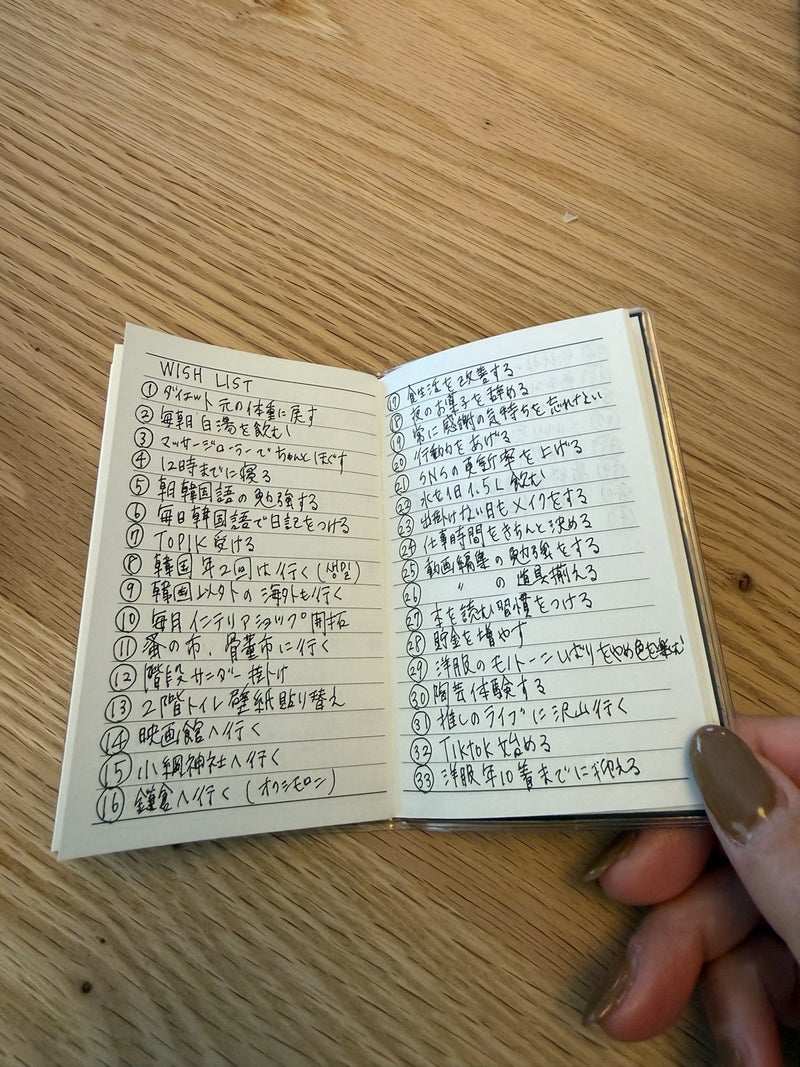 WISH LIST
① ダイエット 元の体重に戻す
② 毎朝白湯を飲む
③ マッサージローラーでちゃんとほぐす
④ 12時までに寝る
⑤ 朝韓国語の勉強する
⑥ 毎日韓国語で日記をつける
⑦ TOPIK 受ける
⑧ 韓国 年2回は行く (생일)
⑨ 韓国以外の海外も行く
⑩ 毎月インテリアショップ開拓
⑪ 蚤の市、骨董市に行く
⑫ 階段サンダー掛け
⑬ 2階トイレ壁紙貼り替え
⑭ 映画館へ行く
⑮ 小網神社へ行く
⑯ 鎌倉へ行く (オクシモロン)
⑰ 食生活を改善する
⑱ 夜のお菓子を辞める
⑲ 常に感謝の気持ちを忘れない
⑳ 行動力をあげる
㉑ SNSの更新率を上げる
㉒ 水を1日1.5L飲む
㉓ 出掛けない日もメイクをする
㉔ 仕事時間をきちんと決める
㉕ 動画編集の勉強をする
㉖ 〃 の道具揃える
㉗ 本を読む習慣をつける
㉘ 貯金を増やす
㉙ 洋服のモノトーンしばりをやめ色を楽む
㉚ 陶芸体験する
㉛ 推しのライブに沢山行く
㉜ Tiktok 始める
㉝ 洋服年10着までに抑える